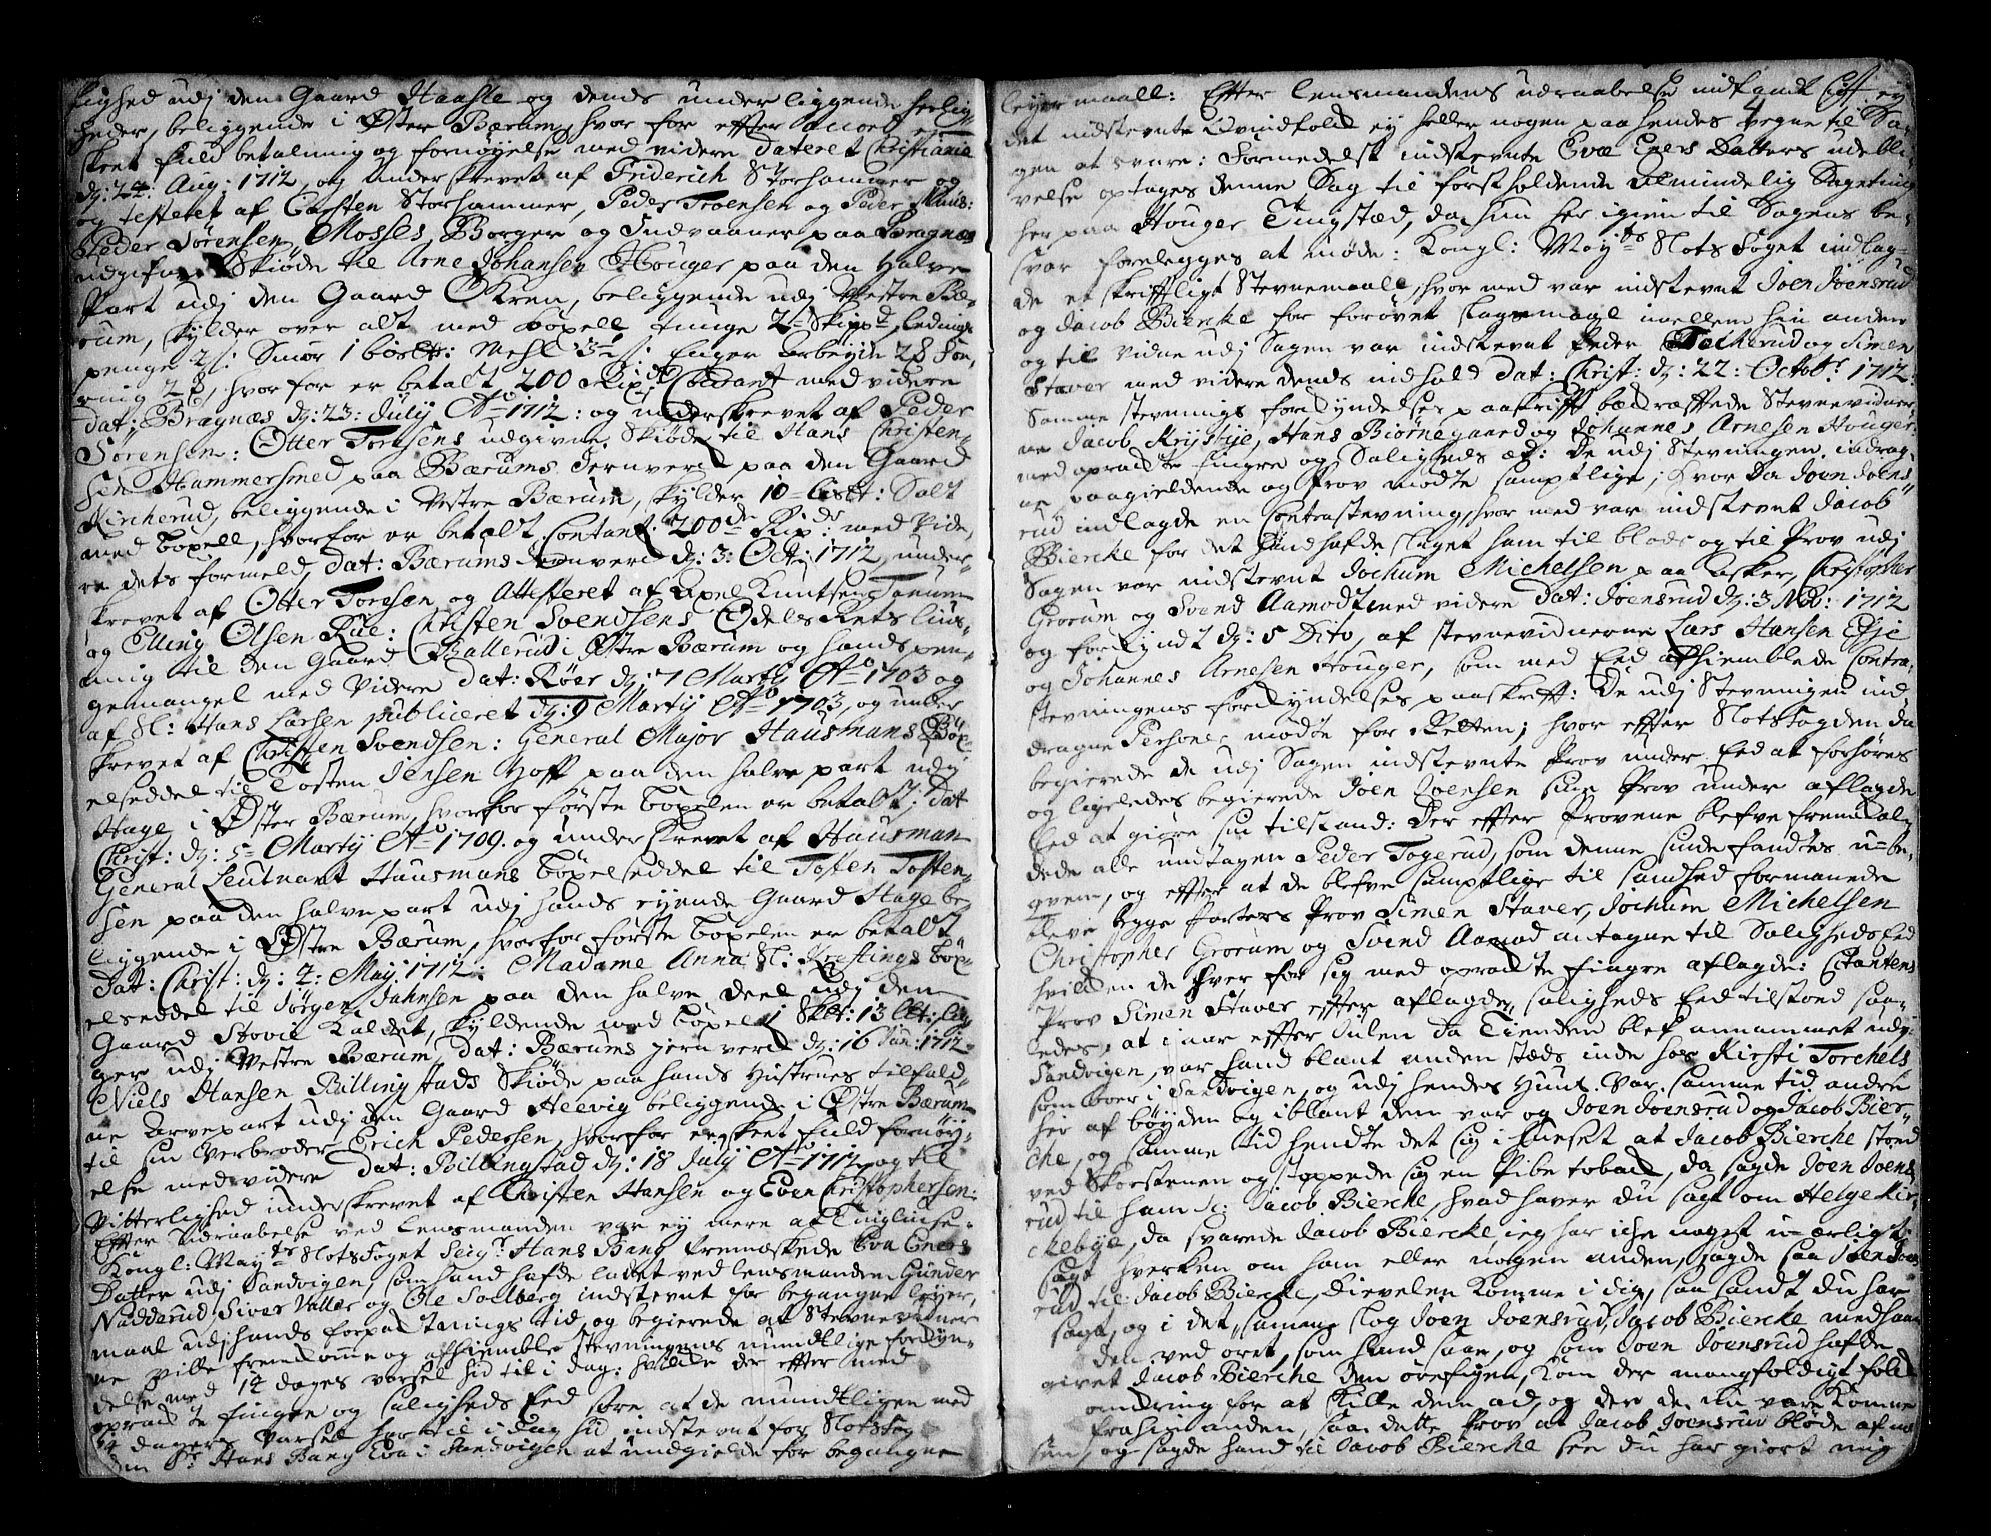 tighed udj den Gaard Haasle og dends underliggende herlig,,
heder, beliggende i Øster Bærum, hvor for effter accord er
skeet fuld betalning og fornøyelse med videre dateret Christiania
dζ: 22: Aug: 1712, og underskrevet af Friderich Storhammer og
og testeret af Carsten Storhammer, Peder Troensen og Peder Mans:
Peder Sørensen, Mosses Borger og Indvaaner paa Bragnæs
udgifne Skiøde til Arne Johansen Houger paa den halve
Part udj den Gaard Økren, beliggende udj Vestre Bæ,,
rum, skylder over alt med bøxell tunge 2 Skippd, Ledings
penge 2 s: Smør 1 bislt: Mehl 3 s: Enger Arbeyde 28 Fo,,
ring 28, hvor for er betalt 200 Rixdr Courant med videre
dat: Bragnæs dζ: 23: July Ao 1712: og underskrevet af Peder
Sørensen: Otter Toresens udgivne Skiøde til Hans Christen,,
sen Hammersmed paa Bærums Jernverck paa den Gaard
Kircherud, beliggende i Vestre Bærum, skylder 10 lislt: Salt
med bøxell, hvorfor er betalt Contant: 200de Rixdr: med vide,,
re dets formeld, dat: Bærums Jernverck dζ: 3: Oct: 1712, under,,
skrevet af Otter Toresen og Attesteret af Axel Knutsen Tanum
og Elling Olsen Rue: Christen Svendsens Odels Rets lius,,
ning til den Gaard Ballerud i Østre Bærum og hands pen,,
gemangel med videre dat: Røer dζ: 7 Marty Ao 1703 og
af Sl: Hans Larsen publiceret dζ: 9 Marty Ao 1703, og under
skrevet af Christen Svendsen: General Major Hausmans Böx,,
elseddel til Tosten Jensen Hoff paa den halve part udj
Hage i Øster Bærum, hvorfor første bøxelen er betalt; Dat
Christ: dζ: 5 Marty Ao 1709. og underskrevet af Hausman
General Leutnant Hausmans bøxelseddel til Tosten Tosten,,
sen paa den halve part udj hands eyende Gaard Hage be,,
liggende i Østre Bærum, hvorfor første bøxelen er betalt
Dat: Christ: dζ: 2: May: 1712: Madame Anna Sl: Krefting bøx,,
elseddel til Jörgen Jahnsen paa den halve deel udj den
Gaard Stovie Kaldet, skyldende med bøxel 1 Sklt: 13 llt: lig,,
ger udj Vestre Bærum, dat: Bærums jernverck dζ: 16 Jan: 1712
Niels Hansen Billingstads Skiøde paa hands Hustrues tilfald,,
ne Arvepart udj den Gaard Heevig beliggende i Østre Bærum
til sin Verbroder Erich Pedersen, hvorfor er skeet fuld fornöy,,
else med videre dat: Billingstad dζ: 18 July Ao 1712, og til
Vitterlighed underskrevet af Christen Hansen og Even Christophersen:
Effter Udraabelse ved Lensmanden var ey mere af Tinglinse.
Kongl: Mayts SlotsFoget Seigr Hans Bang fremæskede Eva Eners
Datter udj Sandvigen, som hand hafde ladet ved Lensmanden Gunder
Nadderud, Siver Vallær og Ole Soelberg indstevnt for begangne leyer,,
maal udj hands forpacktnings tid, og begierede at Stevnevidner
ne ville fremkomme og afhiemble stevningens mundtlige forkyn,,
delse med 14 dages varsel hid til i dag: hvilke der effter med
opragte fingre og saligheds Eed svore at de mundtligen med
14 dagers varsel har til i dag hid indstevnt for Slotsfog,,
den Sr Hans Bang Eva i Sandvigen at undgielde for begangne
4
leyermaall: Effter lensmandens udraabelse indfandt sig ey
det indstevnte Qvindfolk ey heller nogen paa hendes vegne til Sa,,
gen at svare: Formedelst indstevnte Evæ Eners Datters udebli,,
velse optages denne Sag til förstholdende Almindelig Sageting
her paa Houger Tingstæd, da hun her igien til Sagens be,,
svar forelegges at møde: Kongl: Mayts Slots Foget indlag,,
de et skrifftligt Stevnemaall, hvor med var indstevnt Joen Joensrud
og Jacob Biercke for forøvet slagsmaal imellem hin anden
og til vidne udj Sagen var indstevnt Peder Tocherud og Simen
Staver med videre dends indhold dat: Christ: dζ: 22: Octobr 1712:
Samme Stevnings forkyndelses paaskrifft bekræftede Stevnevidner,,
ne Jacob Krystbye, Hans Biørnegaard og Johannes Arnesen Houger
med opragte fingre og Saligheds æd: De udj Stevningen inddrag,,
ne saagieldende og Prov mødte samptlige; hvor da Joen Joens,,
rud indlagde en Contrastevning, hvor med var indstevnt Jacob
Biercke for det hand hafde slaget ham til blods og til Prov udj
Sagen var indstevnt Jochum Michelsen paa Asker, Christopher
Grorum og Svend Aamodt med videre dat: Joensrud dζ: 3 Nov: 1712
og forkyndt dζ: 5 Dito, af Stevnevidnerne Lars Hansen Esje
og Johannes Arnesen Houger, som med Eed afhiemblede Contra,,
stevningens forkyndelses paaskrefft: De udj Stevningen ind
dragne Personer mødte for Retten; hvor effter Slotsfogden da
begierede de udj Sagen indstevnte Prov under Eed at forhøres
og ligeledes begierede Joen Joensen sine Prov under aflagde
Eed at giøre sin tilstand: Der effter Provene blefve fremkal,,
dede alle undtagen Peder Togerud, som denne sinde fandtes u-be,,
qvem, og effter at de blefve samptlige til sandhed formanede
bleve begge Parters Prov Simen Staver, Jochum Michelsen
Christopher Grorum og Svend Aamod antagne til Saligheds Eed
hvilcken de hver for sig med opragte fingre aflagde: Citantens
Prov Simen Staver effter aflagde saligheds Eed tilstoed saa,,
ledes, at i aar effter Julen da Tienden blef annammet udj
Sandvigen, var hand blant anden stæds inde hos Kirsti Torchels
som boer i Sandvigen, og udj hendes Huus var samme tid andre
her af bøyden og iblant dem var og Joen Joensrud og Jacob Bier,,
cke, og samme tid hendte det sig i huuset at Jacob Biercke stoed
ved Skorstenen og stoppede sig en Pibe toback, da sagde Joen Joens,,
rud til ham sc: Jacob Biercke, hvad haver du sagt om Helge Kir,,
ckebye, da svarede Jacob Biercke, ieg har iche noget u-ærligt
sagt hverken om ham eller nogen anden, sagde saa Joen Joens,,
rud til Jacob Biercke, Dievelen Komme i dig, saa sandt du har
sagt, og i det samme slog Joen Joensrud, Jacob Biercke med haan,,
den ved øret, som hand saae, og som Joen Joensrud hafde
givet Jacob Biercke den ørefigen, kom der mangfoldigt folk
omkring for at skille dem ad, og der de nu vare komne
fra hin anden, saae dette Prov at Jacob Joensrud bløde af næ
sen, og sagde hand til Jacob Biercke see du har giort mig